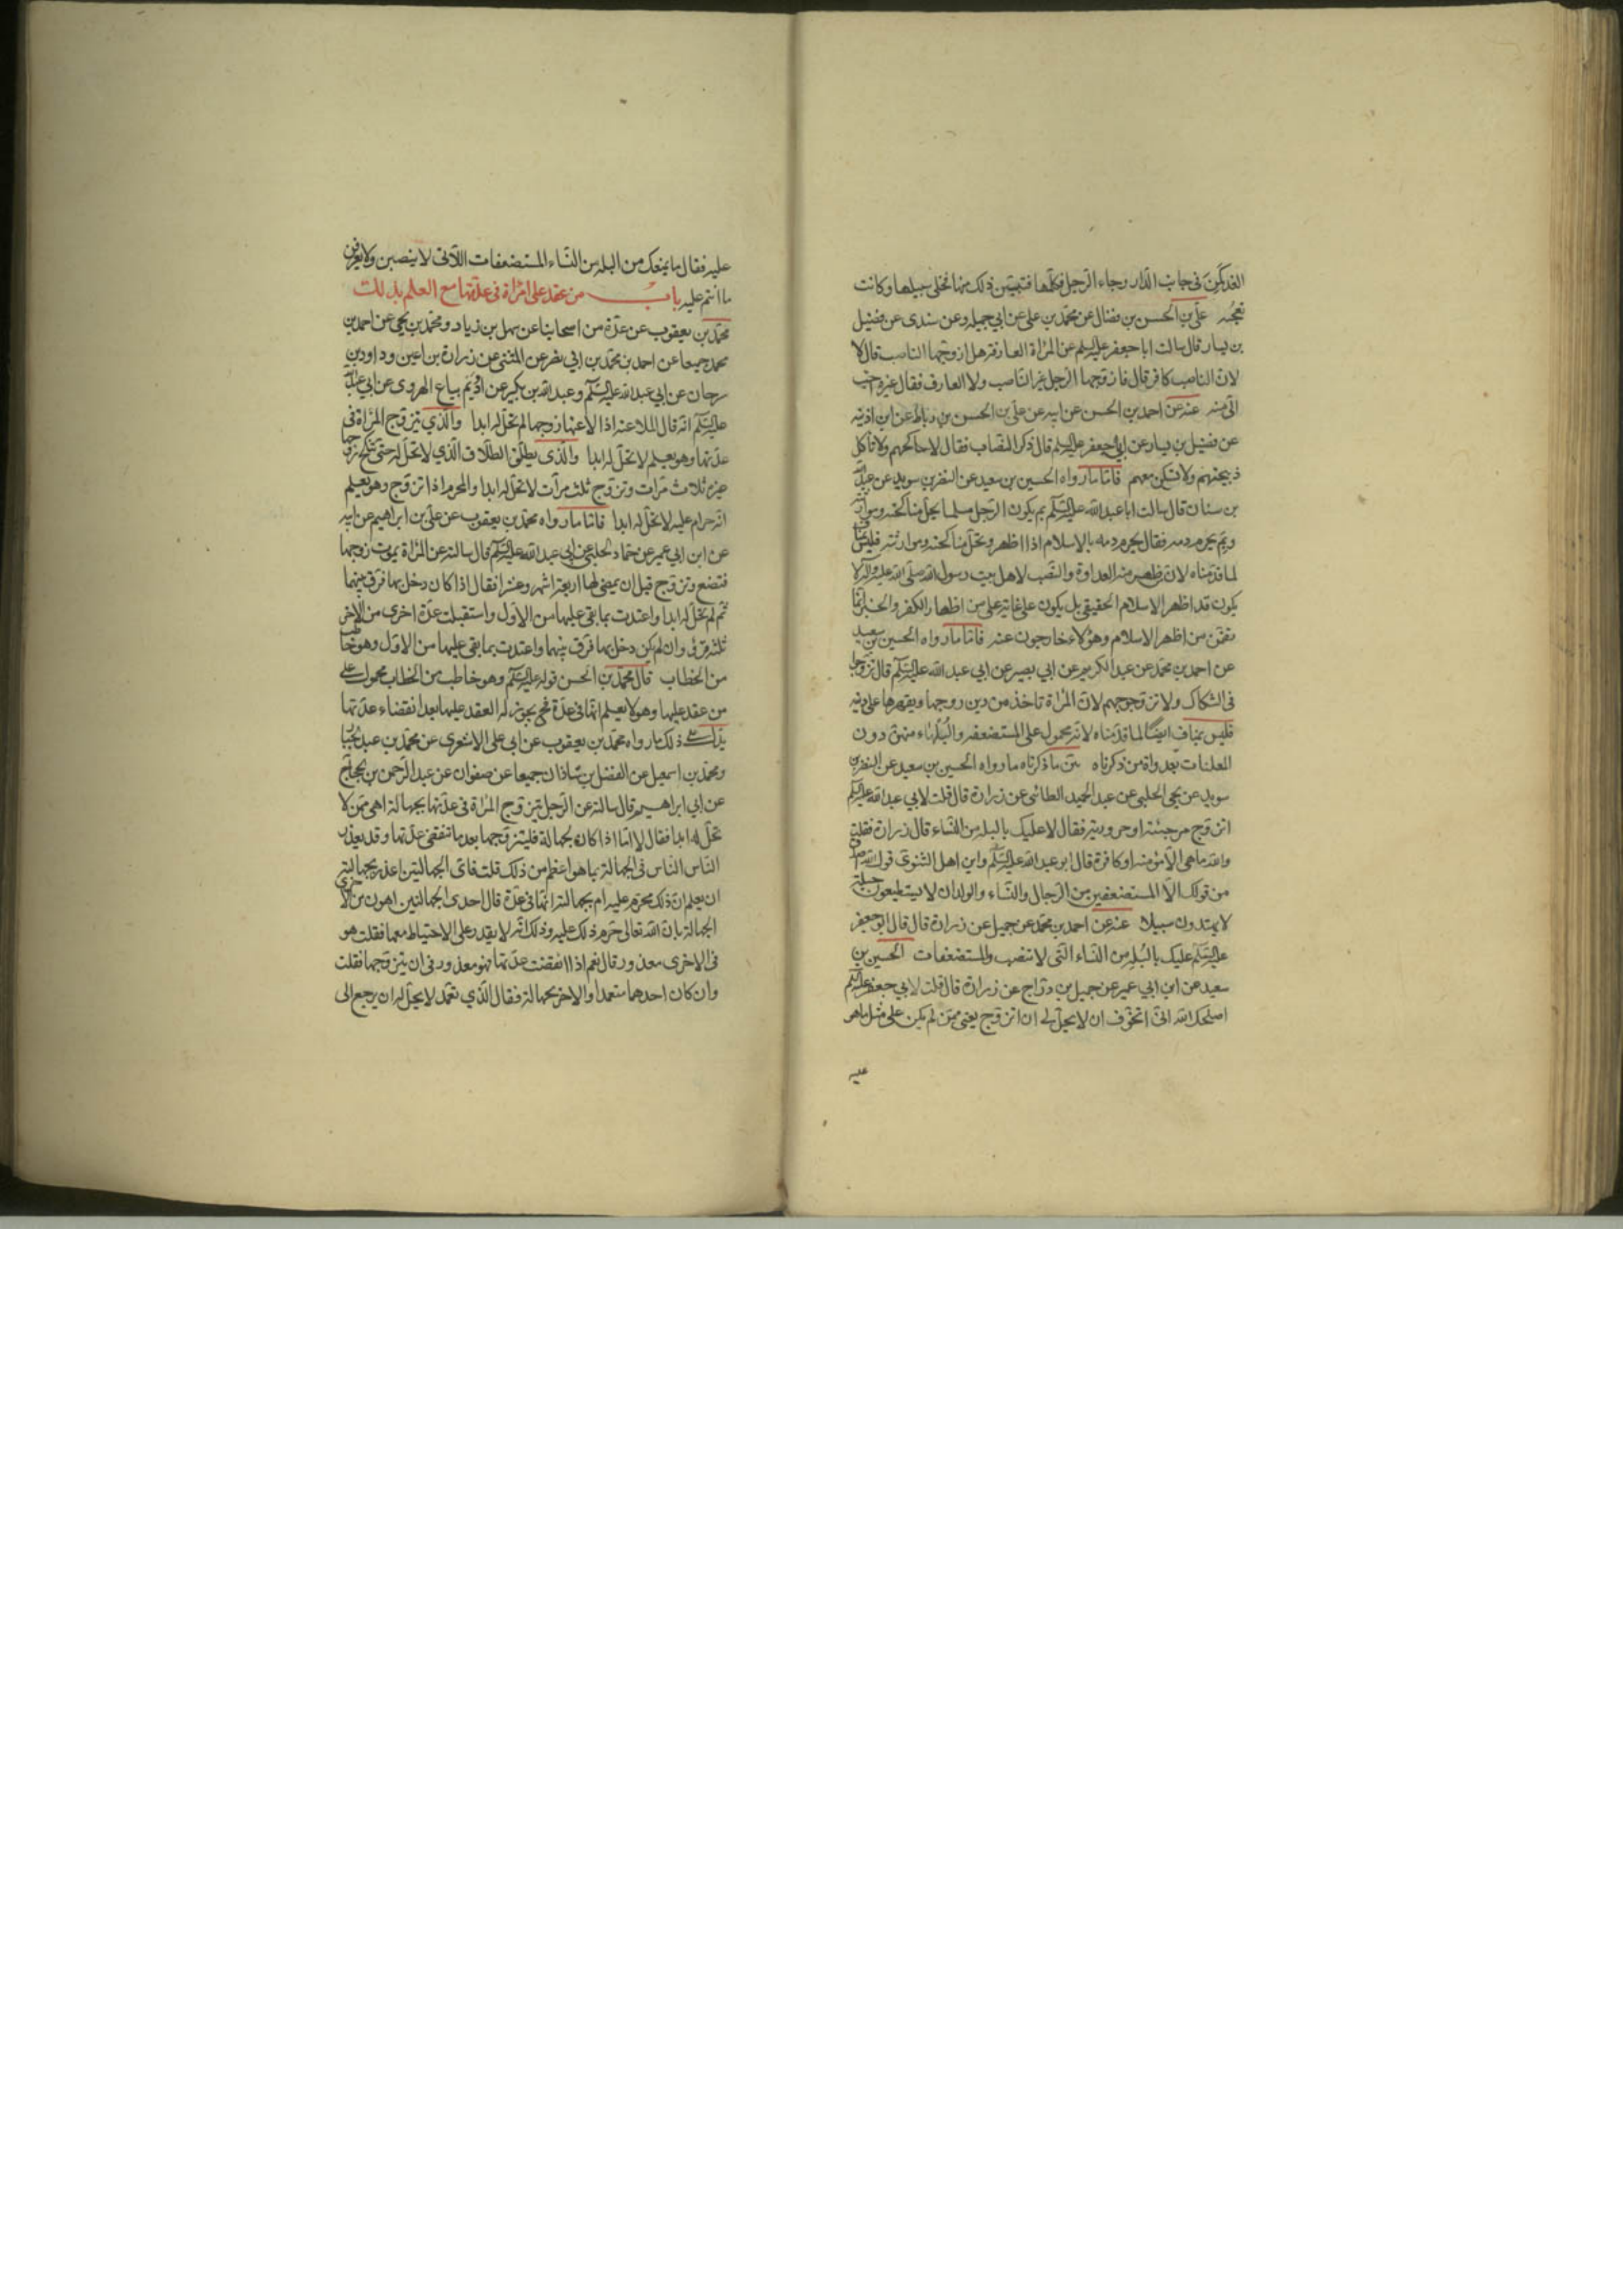 الغد كمن في جانب الدار وجاء الرجل فكلمها فتبين ذلك منها فخلى سبيلها وكانت
تعجبه علي بن الحسن بن فضال عن محمد بن علي عن ابي جميله وعن سندى عن فضيل
بن يسار قال سالت ابا جعفر عليه السلم عن المراة العارفة هل ازوجها الناصب قال لا
لان الناصب كافر قال فازوجها الرجل غير الناصب ولا العارف فقال غيره احب
الي منه عنه عن احمد بن الحسن عن ابيه عن علي بن الحسن بن رباط عن ابن اذينه
عن فضيل بن يسار عن ابي جعفر عليه السلم قال ذكر النصاب فقال لا تناكحهم ولا تاكل
ذبيحتهم ولا تسكن معهم فاما ما رواه الحسين بن سعيد عن النضر بن سويد عن عبد الله
بن سنان قال سالت ابا عبد الله عليه السلم بم يكون الرجل مسلما يحل مناكحته وموارثته
وبم يحرم دمه فقال يحرم دمه بالاسلام اذا اظهر وتحل مناكحته وموارثته فليس بمناف
لما قدمناه لان من ظهر منه العداوة والنصب لاهل بيت رسول الله صلى الله عليه واله لا
يكون قد اظهر الاسلام الحقيقي بل يكون على غاية على من اظهار الكفر والخبر انما
تضمن من اظهر الاسلام وهؤلاء خارجون عنه فاما ما رواه الحسين بن سعيد
عن احمد بن محمد عن عبد الكريم عن ابي بصير عن ابي عبد الله عليه السلم قال تزوجوا
في الشكاك ولا تزوجوهم لان المراة تاخذ من دين زوجها ويقهرها على دينه
فليس بمناف ايضا لما قدمناه لانه محمول على المستضعفه والبلهاء منهن دون
المعلنات بعداوة من ذكرناه يبين ما ذكرناه ما رواه الحسين بن سعيد عن النضر بن
سويد عن يحيى الحلبي عن عبد الحميد الطائى عن زرارة قال قلت لابي عبد الله عليه السلم
اتزوج مرجئة او حرورية فقال لا عليك بالبله من النساء قال زرارة فقلت
والله ما هي الا مؤمنه او كافرة قال ابو عبد الله عليه السلم واين اهل الثنوى قول الله اصدق
من قولك الا المستضعفين من الرجال والنساء والولدان لا يستطيعون حيلة
لا يهتدون سبيلا عنه عن احمد بن محمد عن جميل عن زرارة قال قال ابو جعفر
عليه السلم عليك بالبله من النساء التي لا تنصب والمستضعفات الحسين بن
سعيد عن ابن ابي عمير عن جميل بن دراج عن زرارة قال قلت لابي جعفر عليه السلم
اصلحك الله اني اتخوف ان لا يحل لي ان اتزوج يعني ممن لم يكن على مثل ما هو
عليه
عليه فقال ما يمنعك من البله من النساء المستضعفات اللاتى لا ينصبن ولا يعرفن
ما انتم عليه باب من عقد على امراة في عدتها مع العلم بذلك
محمد بن يعقوب عن عدة من اصحابنا عن سهل بن زياد ومحمد بن يحيى عن احمد بن
محمد جميعا عن احمد بن محمد بن ابي نصر عن المثنى عن زرارة بن اعين وداود بن
سرحان عن ابي عبد الله عليه السلم وعبد الله بن بكير عن اديم بياع الهروى عن ابي عبد الله
عليه السلم انه قال الملاعنه اذا لاعنها زوجها لم تحل له ابدا والذي يتزوج المراة في
عدتها وهو يعلم لا تحل له ابدا والذي يطلق الطلاق الذي لا تحل له حتى تنكح زوجا
غيره ثلاث مرات وتزوج ثلث مرات لا تحل له ابدا والمحرم اذا تزوج وهو يعلم
انه حرام عليه لا تحل له ابدا فاما ما رواه محمد بن يعقوب عن علي بن ابراهيم عن ابيه
عن ابن ابي عمير عن حماد الحلبي عن ابي عبد الله عليه السلم قال سالته عن المراة يموت زوجها
فتضع وتزوج قبل ان يمضى لها اربعة اشهر وعشرا فقال اذا كان دخل بها فرق بينهما
ثم لم تحل له ابدا واعتدت بما بقي عليها من الاول واستقبلت عدة اخرى من الاخر
ثلثة قروء وان لم يكن دخل بها فرق بينهما واعتدت بما بقي عليها من الاول وهو خاطب
من الخطاب قال محمد بن الحسن قوله عليه السلم وهو خاطب من الخطاب محمول على
من عقد عليها وهو لا يعلم انها في عدة فحينئذ يجوز له العقد عليها بعد انقضاء عدتها
يدل على ذلك ما رواه محمد بن يعقوب عن ابي على الاشعرى عن محمد بن عبد الجبار
ومحمد بن اسمعيل عن الفضل بن شاذان جميعا عن صفوان عن عبد الرحمن بن الحجاج
عن ابي ابراهيم قال سالته عن الرجل يتزوج المراة في عدتها بجهالة اهي ممن لا
تحل له ابدا فقال لا اما اذا كان بجهالة فليتزوجها بعد ما تنقضي عدتها وقد يعذر
الناس الناس في الجهالة بما هو اعظم من ذلك قلت فاى الجهالتين اعذر بجهالته
ان يعلم ان ذلك محرم عليه ام بجهالته انها في عدة قال احدى الجهالتين اهون من الاخرى
الجهالة بان الله تعالى حرم ذلك عليه وذلك انه لا يقدر على الاحتياط معها فقلت هو
في الاخرى معذور قال نعم اذا انقضت عدتها فهو معذور في ان يتزوجها فقلت
وان كان احدهما متعمدا والاخر بجهالة فقال الذي تعمد لا يحل له ان يرجع الى